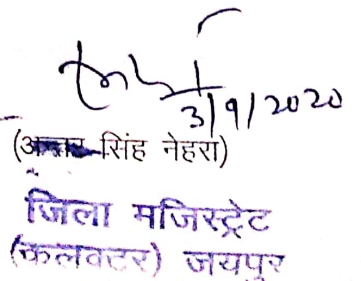 3/9/2020
(अन्तर सिंह नेहरा)
जिला मजिस्ट्रेट
(कलक्टर) जयपुर